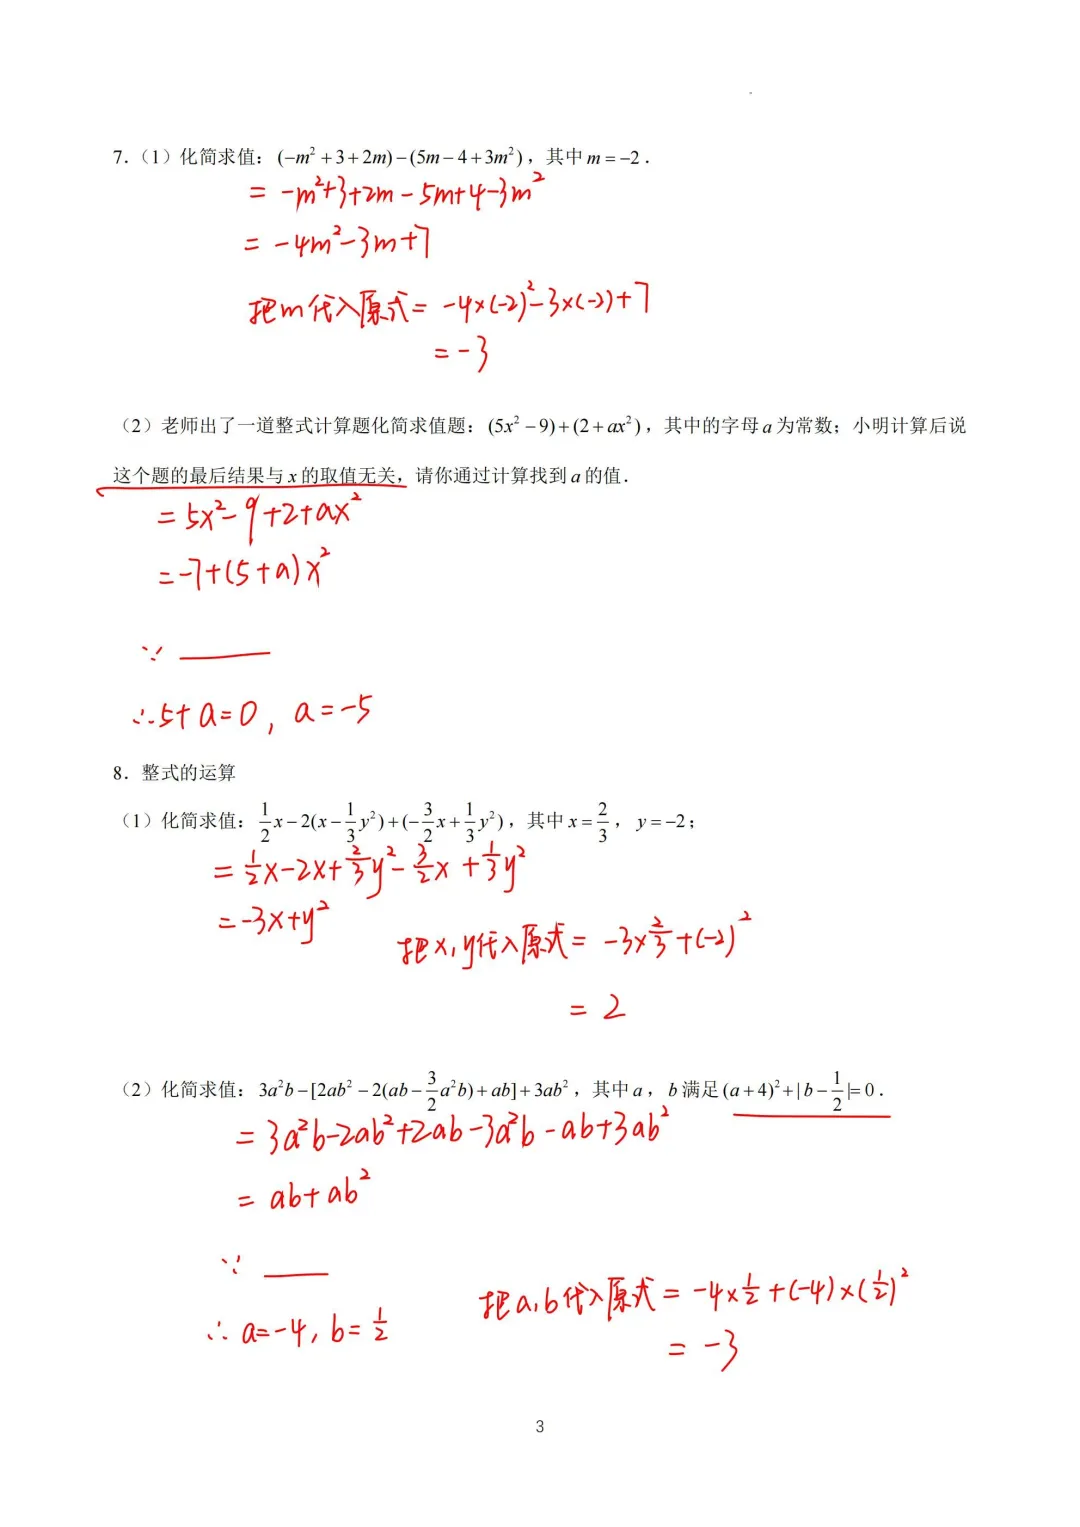 7.（1）化简求值：(−m²+3+2m)−(5m−4+3m²)，其中 m=−2．
= -m²+3+2m-5m+4-3m²
= -4m²-3m+7
把m代入原式= -4×(-2)²-3×(-2)+7
= -3
（2）老师出了一道整式计算题化简求值题：(5x²−9)+(2+ax²)，其中的字母 a 为常数；小明计算后说
这个题的最后结果与 x 的取值无关，请你通过计算找到 a 的值．
= 5x²-9+2+ax²
= -7+(5+a)x²
∵ ____
∴5+a=0, a=-5
8．整式的运算
（1）化简求值：1/2x−2(x−1/3y²)+(−3/2x+1/3y²)，其中 x=2/3，y=−2；
= 1/2x-2x+2/3y²-3/2x+1/3y²
= -3x+y²
把x,y代入原式= -3×2/3+(-2)²
= 2
（2）化简求值：3a²b−[2ab²−2(ab−3/2a²b)+ab]+3ab²，其中 a，b 满足 (a+4)²+|b−1/2|=0．
= 3a²b-2ab²+2ab-3a²b-ab+3ab²
= ab+ab²
∵ ____
∴ a=-4, b=1/2
把a,b代入原式= -4×1/2+(-4)×(1/2)²
= -3
3